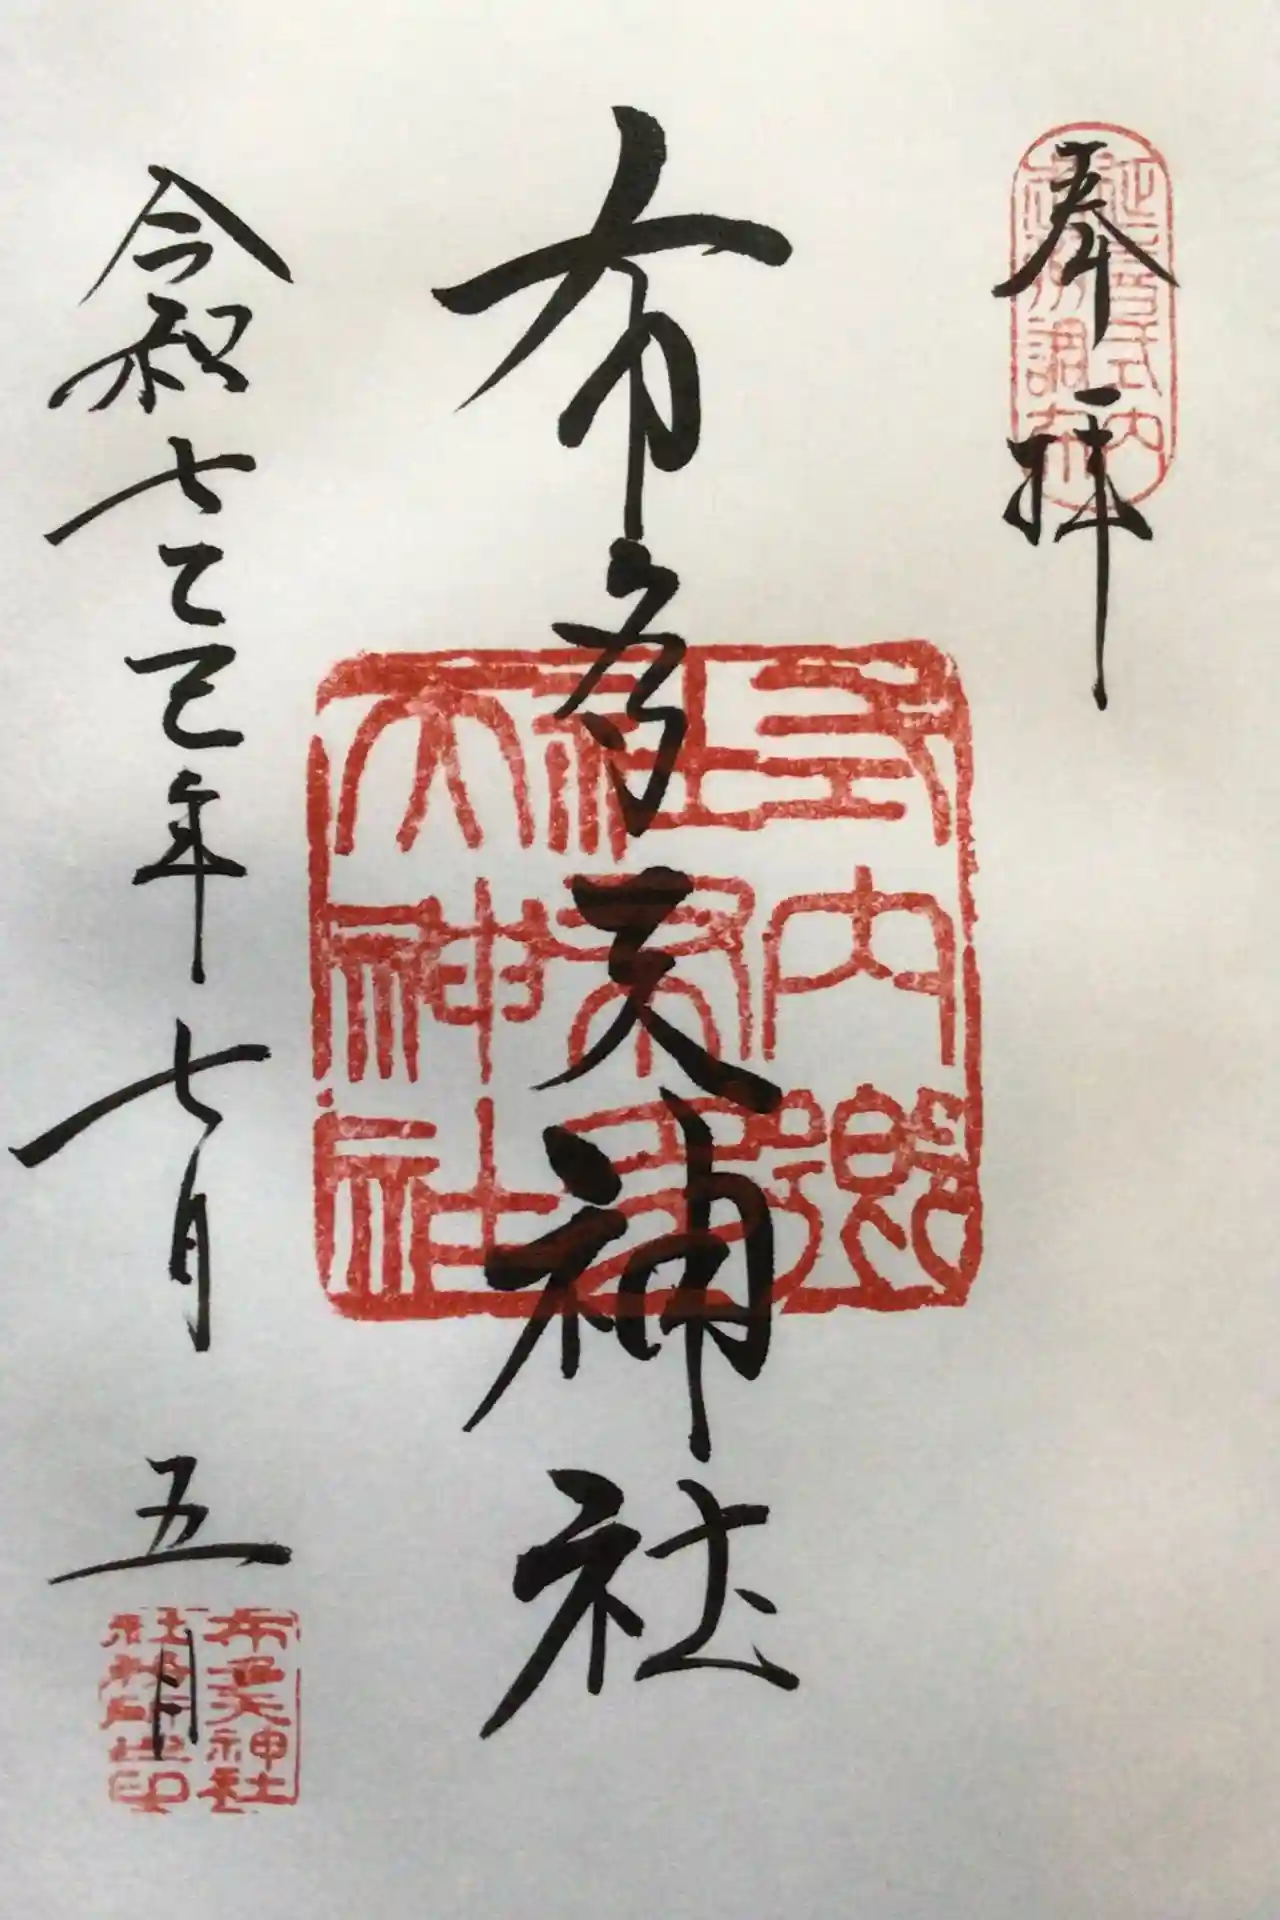 奉拝
延喜式内
武州調布
布多天神社
式内郷
社布多
天神社
令和七乙巳年七月五日
布多天神社
社務所之印